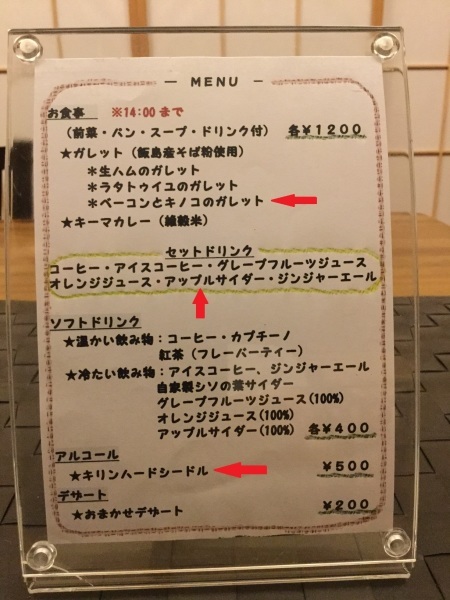 — MENU —
お食事 ※14:00まで
(前菜・パン・スープ・ドリンク付) 各¥1200
★ガレット(飯島産そば粉使用)
＊生ハムのガレット
＊ラタトゥイユのガレット
＊ベーコンとキノコのガレット
★キーマカレー(雑穀米)
セットドリンク
コーヒー・アイスコーヒー・グレープフルーツジュース
オレンジジュース・アップルサイダー・ジンジャーエール
ソフトドリンク
★温かい飲み物：コーヒー・カプチーノ
紅茶(フレーバーティー)
★冷たい飲み物：アイスコーヒー、ジンジャーエール
自家製シソの葉サイダー
グレープフルーツジュース(100%)
オレンジジュース(100%)
アップルサイダー(100%) 各¥400
アルコール
★キリンハードシードル ¥500
デザート
★おまかせデザート ¥200